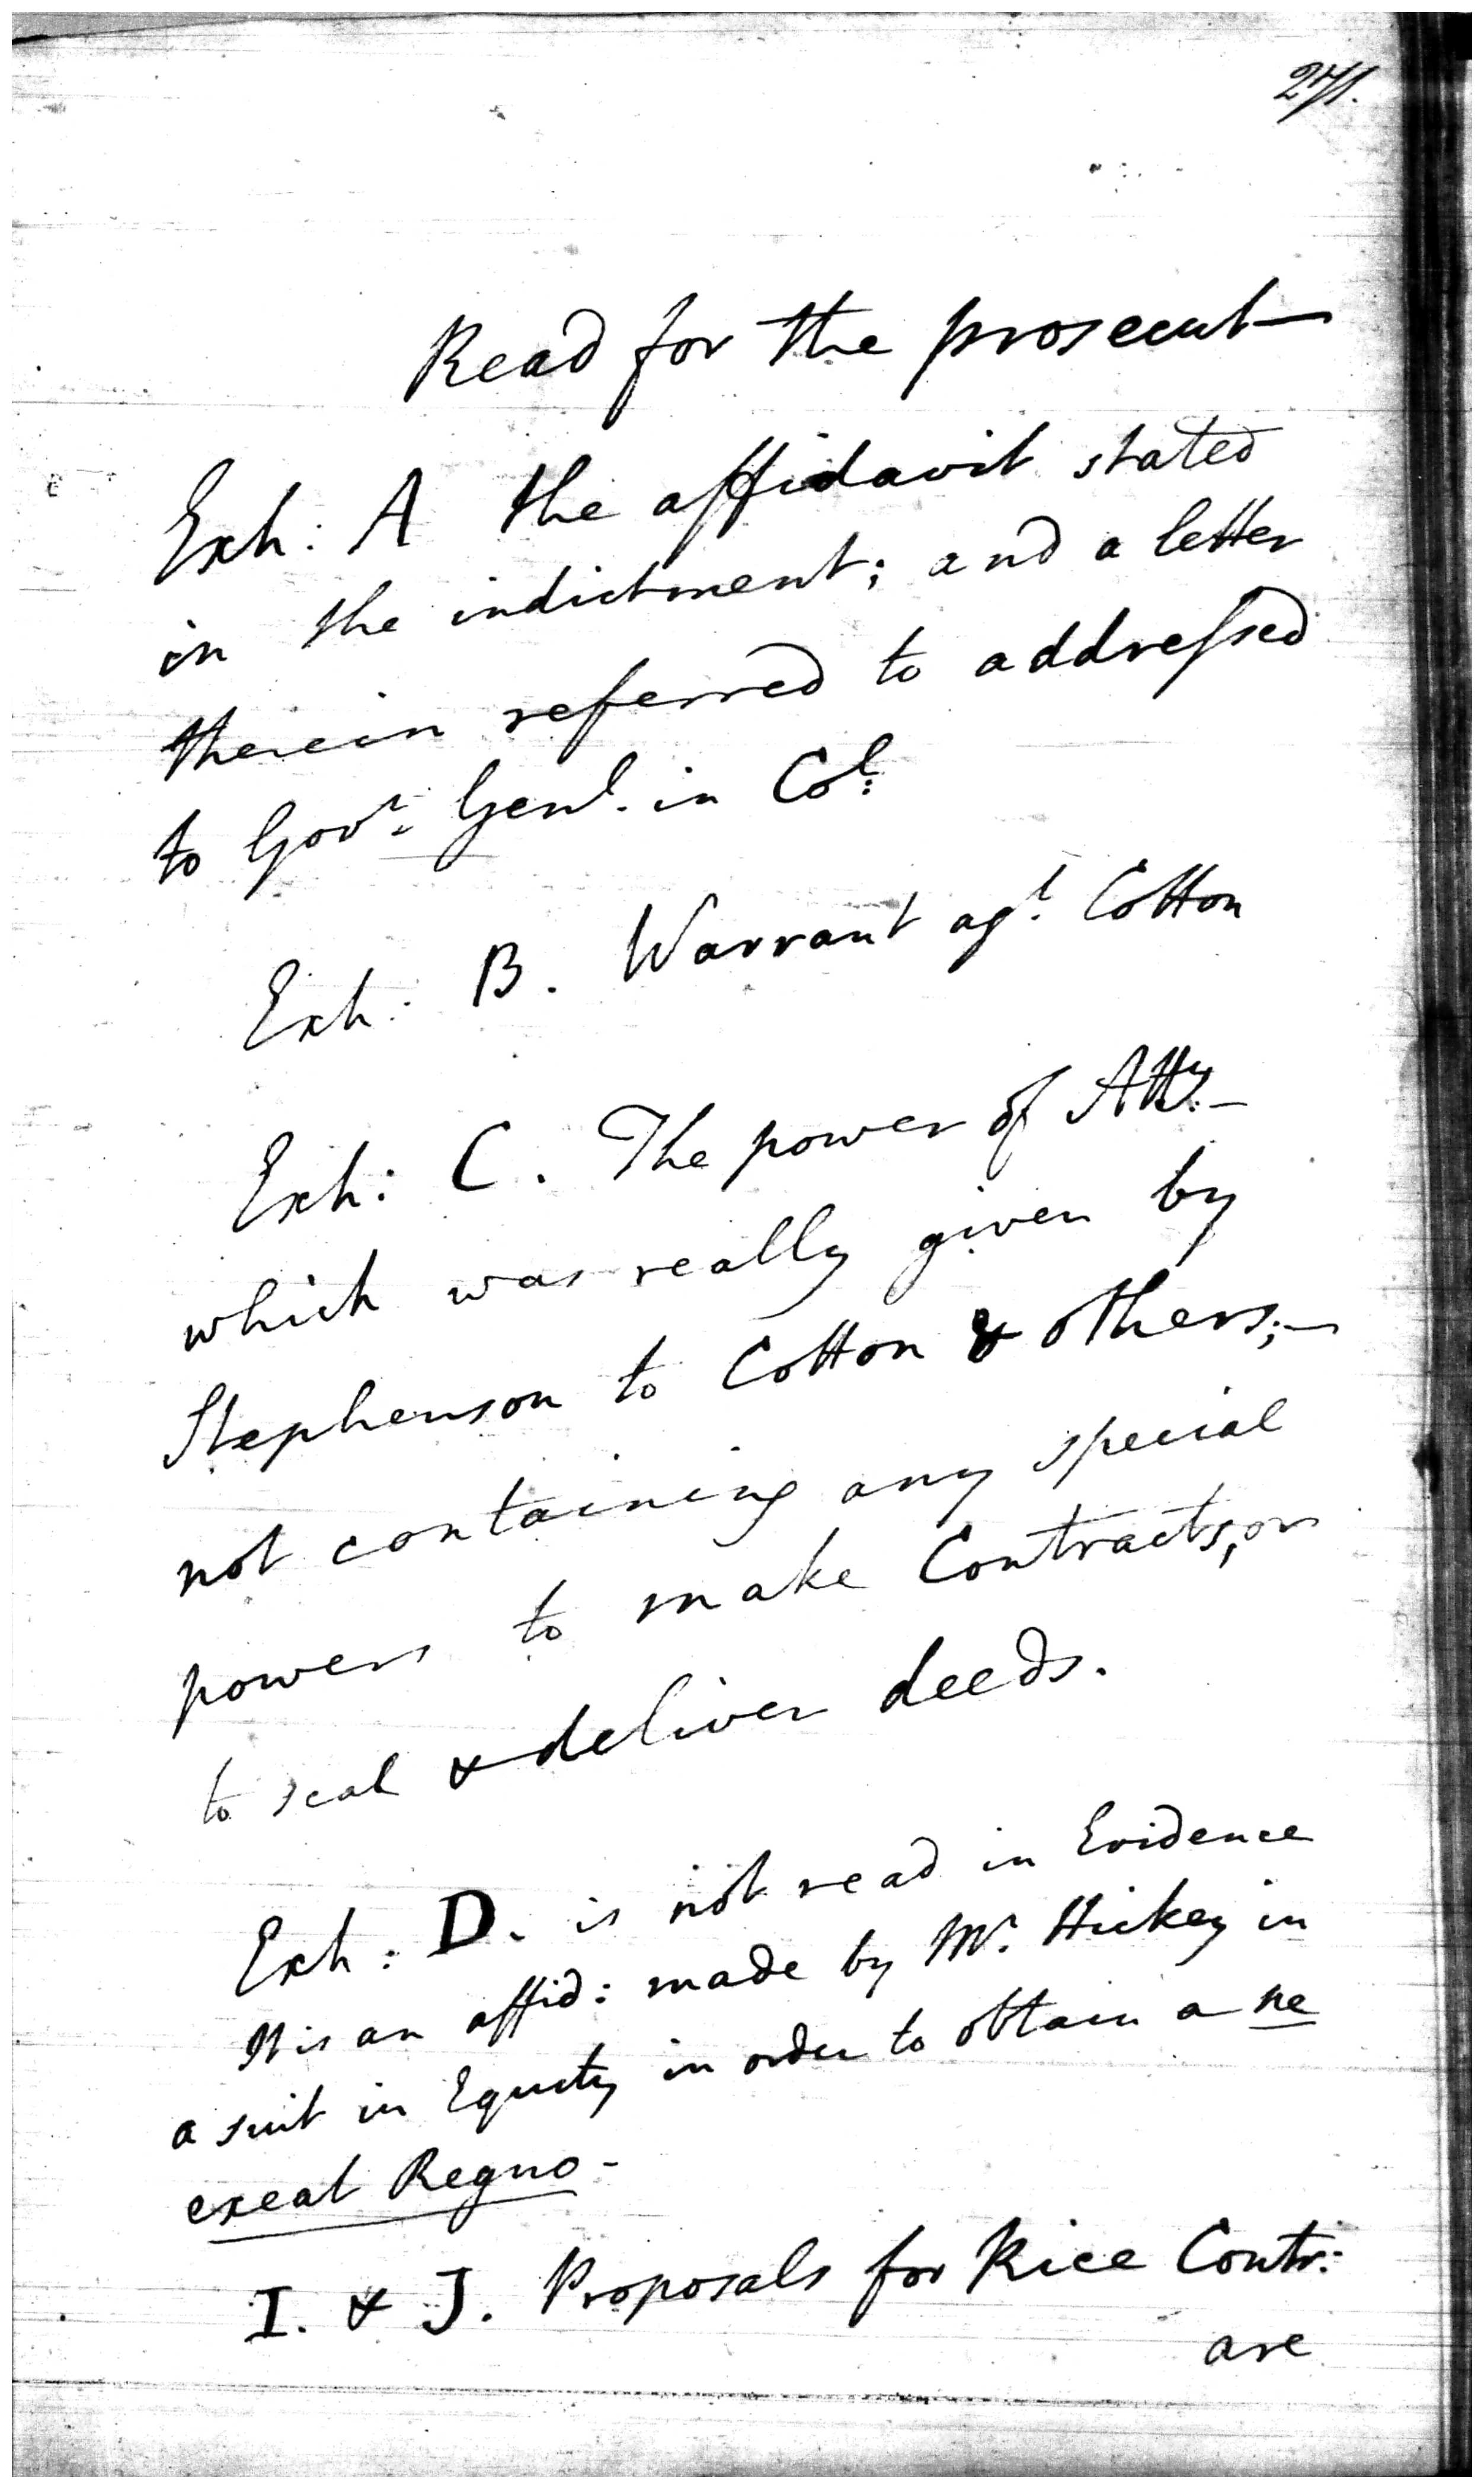 271.
Read for the prosecut—
Exh: A the affidavit stated
in the indictment; and a letter
therein referred to addressed
to Govr. Genl. in Col:
Exh: B. Warrant agt. Cotton
Exh: C. The power of Atty.—
which was really given by
Stephenson to Cotton & others;—
not containing any special
powers to make Contracts, or
to seal & deliver deeds.
Exh: D. is not read in Evidence
It is an affid: made by Mr. Hickey in
a suit in Equity in order to obtain a ne
exeat Regno-
I. & J. Proposals for Rice Contr:
are